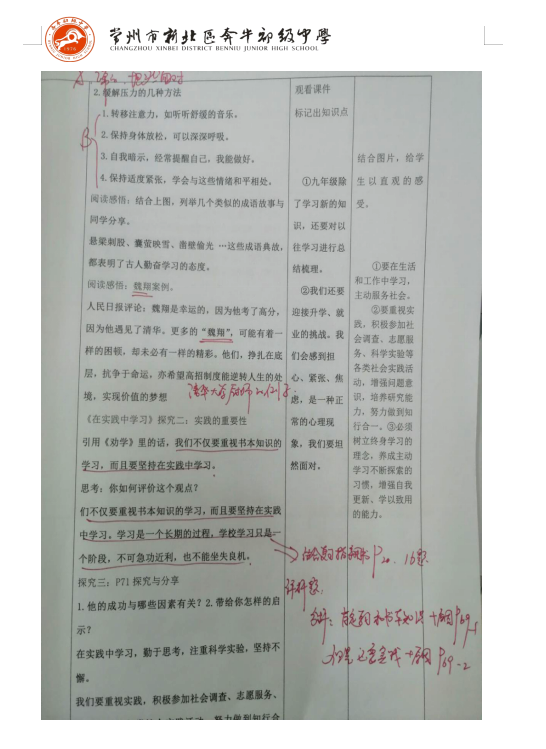 常州市新北区奔牛初级中学
CHANGZHOU XINBEI DISTRICT BENNIU JUNIOR HIGH SCHOOL
2.缓解压力的几种方法
1.转移注意力，如听听舒缓的音乐。
2.保持身体放松，可以深深呼吸。
3.自我暗示，经常提醒自己，我能做好。
4.保持适度紧张，学会与这些情绪和平相处。
阅读感悟：结合上图，列举几个类似的成语故事与
同学分享。
悬梁刺股、囊萤映雪、凿壁偷光 …这些成语典故，
都表明了古人勤奋学习的态度。
阅读感悟：魏翔案例。
人民日报评论：魏翔是幸运的，因为他考了高分，
因为他遇见了清华。更多的“魏翔”，可能有着一
样的困顿，却未必有一样的精彩。他们，挣扎在底
层，抗争于命运，亦希望高招制度能逆转人生的处
境，实现价值的梦想
清华大学
《在实践中学习》探究二：实践的重要性
引用《劝学》里的话，我们不仅要重视书本知识的
学习，而且要坚持在实践中学习。
思考：你如何评价这个观点？
们不仅要重视书本知识的学习，而且要坚持在实践
中学习。学习是一个长期的过程，学校学习只是一
个阶段，不可急功近利，也不能坐失良机。
探究三：P71 探究与分享
1.他的成功与哪些因素有关？2.带给你怎样的启
示？
在实践中学习，勤于思考，注重科学实验，坚持不
懈。
我们要重视实践，积极参加社会调查、志愿服务、
观看课件
标记出知识点
①九年级除
了学习新的知
识，还要对以
往学习进行总
结梳理。
②我们还要
迎接升学、就
业的挑战。我
们会感到担
心、紧张、焦
虑，是一种正
常的心理现
象，我们要坦
然面对。
P20. 16题
P69-1
P69-2
结合图片，给学
生以直观的感
受。
①要在生活
和工作中学习，
主动服务社会。
②要重视实
践，积极参加社
会调查、志愿服
务、科学实验等
各类社会实践活
动，增强问题意
识，培养研究能
力，努力做到知
行合一。③必须
树立终身学习的
理念，养成主动
学习不断探索的
习惯，增强自我
更新、学以致用
的能力。